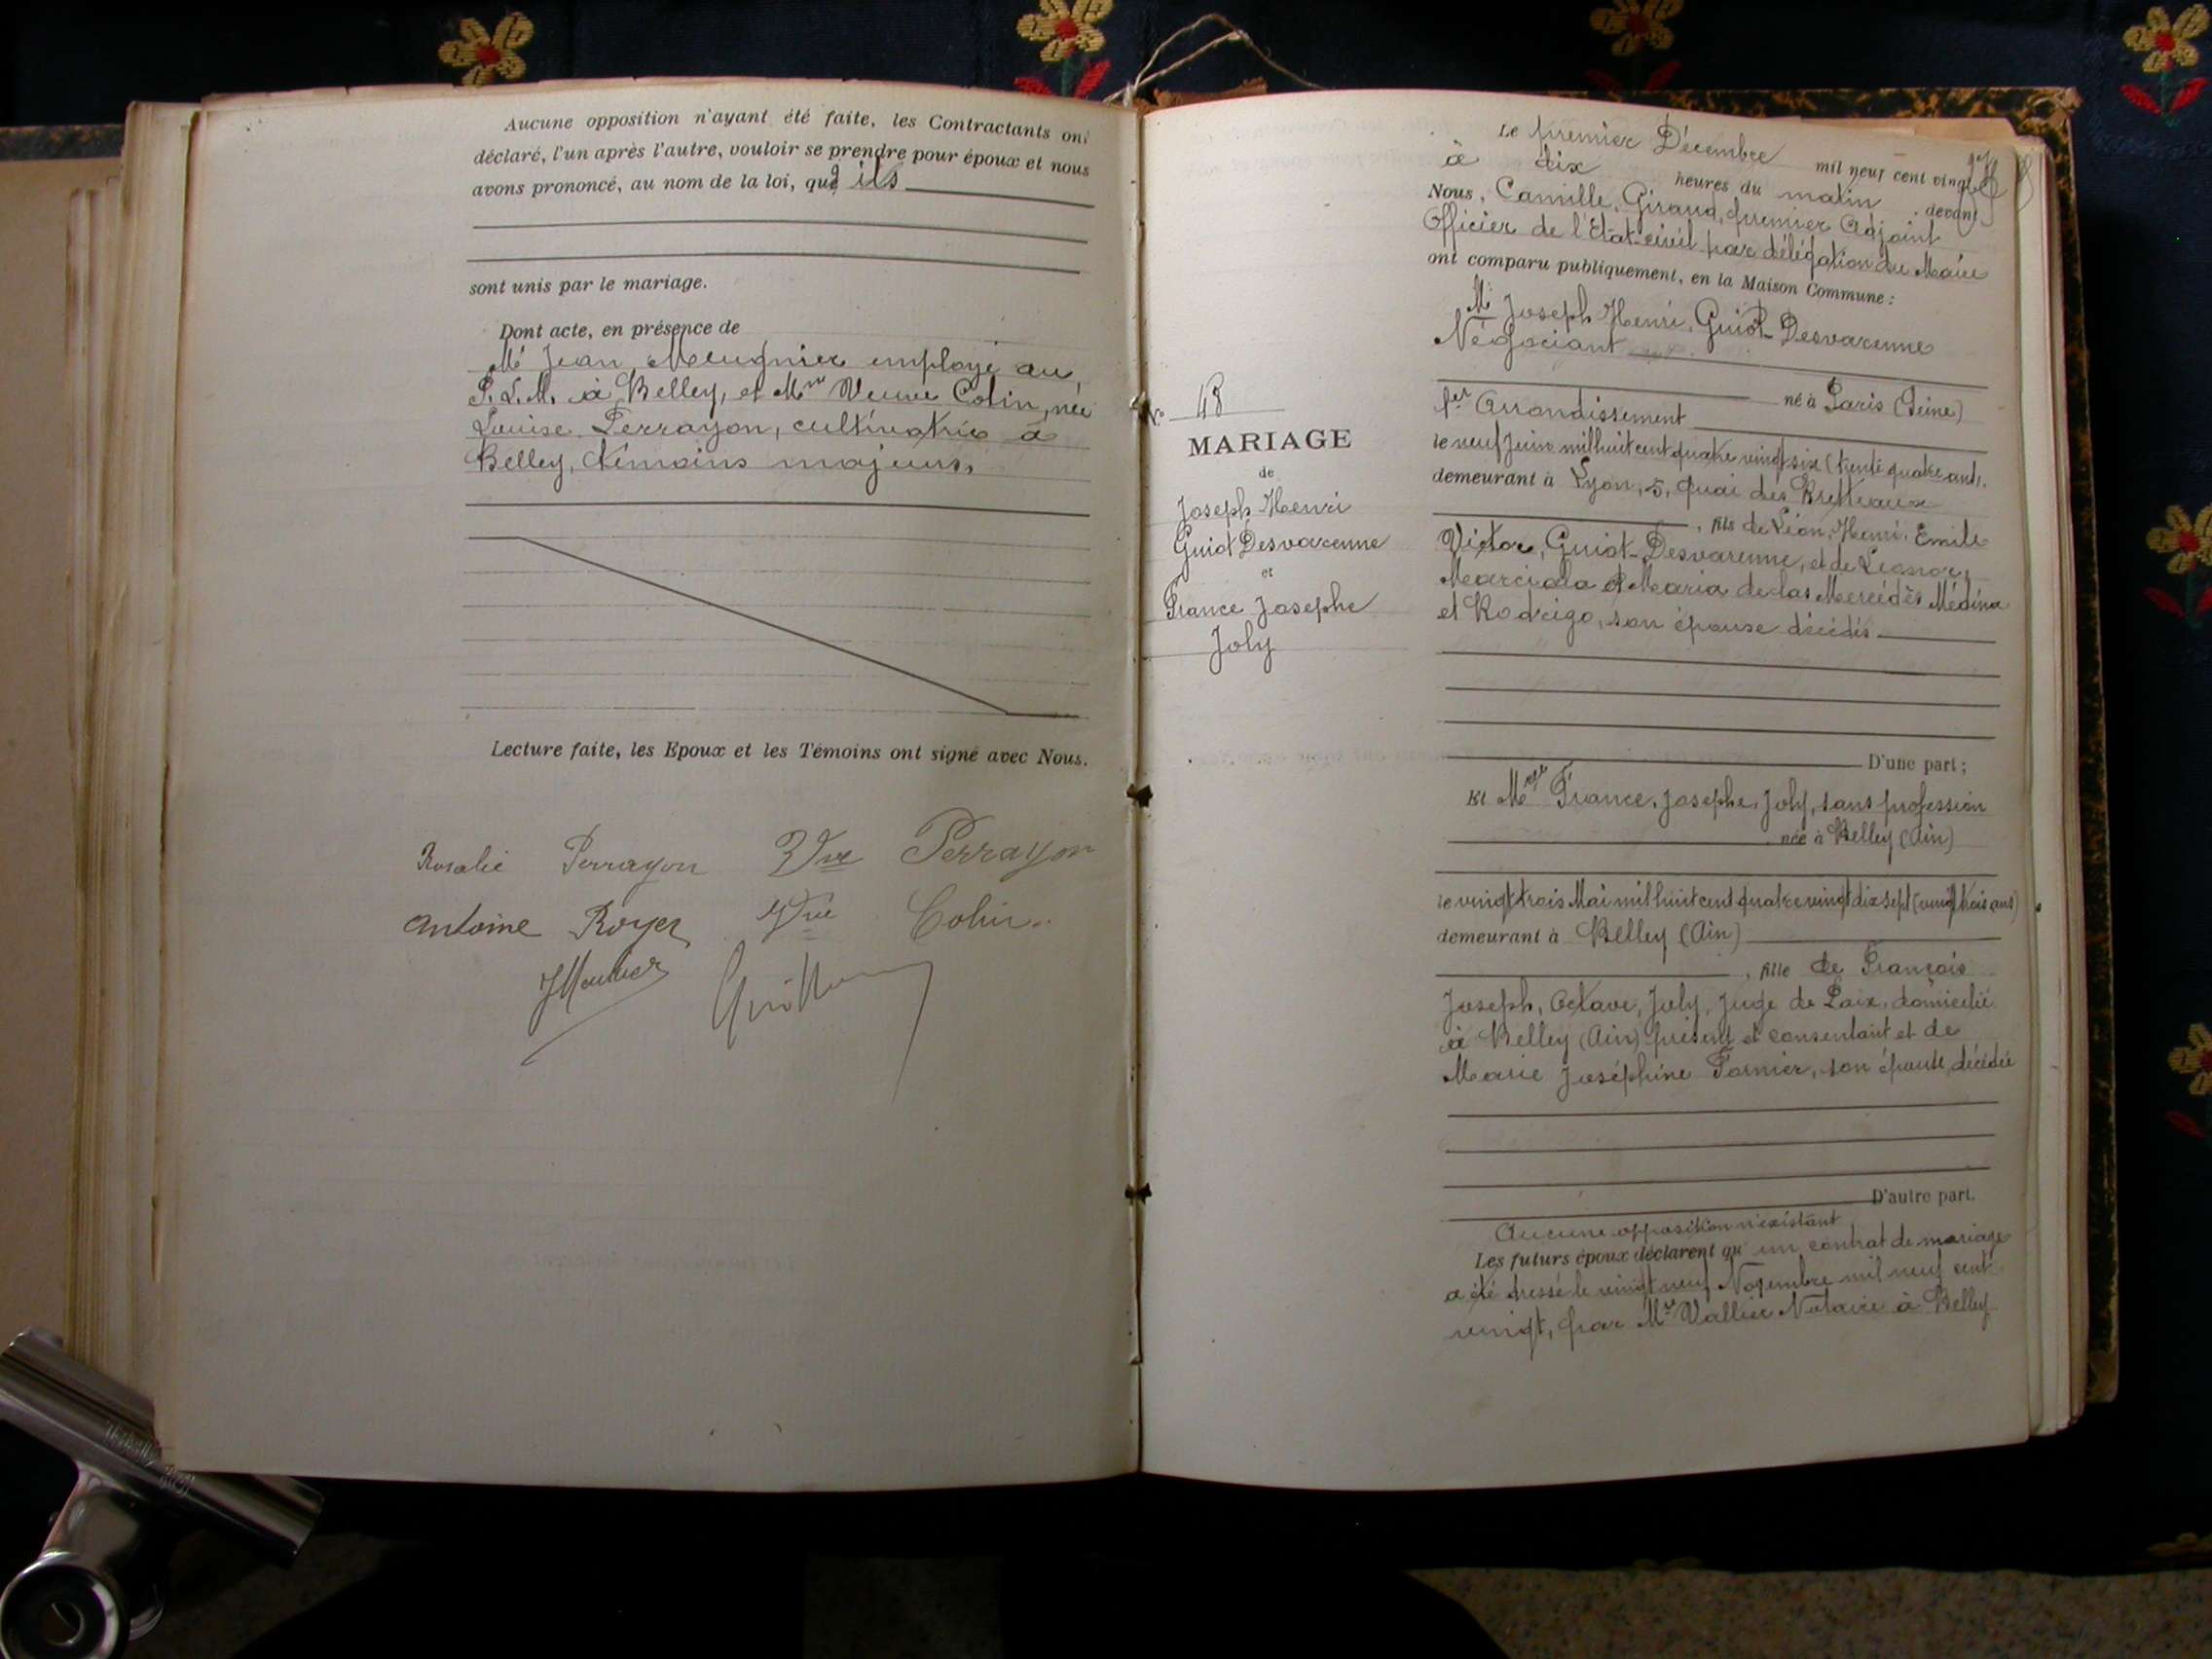 Aucune opposition n'ayant été faite, les Contractants ont
déclaré, l'un après l'autre, vouloir se prendre pour époux et nous
avons prononcé, au nom de la loi, qu'ils
sont unis par le mariage.
Dont acte, en présence de
Mr Jean Meugnier employé au
P. L. M. à Belley, et Mme Veuve Colin, née
Louise Perrayon, cultivatrice à
Belley, témoins majeurs,
Lecture faite, les Epoux et les Témoins ont signé avec Nous.
Rosalie Perrayon Vve Perrayon
Antoine Royer Vve Colin
N° 48
MARIAGE
de
Joseph Henri
Guiot Desvarenne
et
France Josephe
Joly
Le premier Décembre mil neuf cent vingt
à dix heures du matin, devant
Nous, Camille, Giraud, premier Adjoint
Officier de l'Etat-civil par délégation du Maire
ont comparu publiquement, en la Maison Commune :
Mr Joseph Henri, Guiot-Desvarenne
Négociant
né à Paris (Seine)
1er Arrondissement
le neuf Juin mil huit cent quatre vingt six (trente quatre ans).
demeurant à Lyon, 5, quai des Brotteaux
, fils de Léon, Henri, Emile
Victor, Guiot-Desvarenne, et de Leonor,
Marciala Maria de las Mercédès Médina
et Rodrigo, son épouse décédés
D'une part ;
Et Melle France, Josephe, Joly, sans profession
née à Belley (Ain)
le vingt trois Mai mil huit cent quatre vingt dix sept (vingt trois ans)
demeurant à Belley (Ain)
, fille de François
Joseph, Octave, Joly, Juge de Paix, domicilié
à Belley (Ain) présent et consentant et de
Marie Joséphine Fornier, son épouse, décédée
D'autre part.
Aucune opposition n'existant
Les futurs époux déclarent qu'un contrat de mariage
a été dressé le vingt neuf Novembre mil neuf cent
vingt, par Me Vallier Notaire à Belley